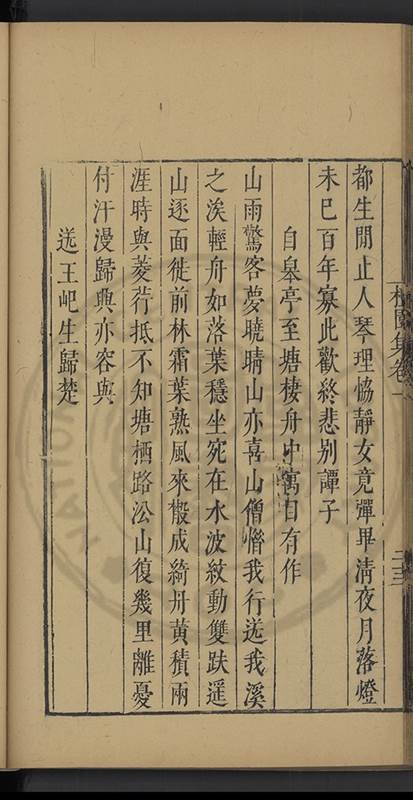 都生閒止人琴理恊靜女竟彈畢淸夜月落燈
未巳百年寡此歡終悲别譚子
自皋亭至塘棲舟中寓目有作
山雨驚客夢曉晴山亦喜山僧憎我行送我溪
之涘輕舟如落葉穩坐宛在水波紋動雙趺遥
山逐面徙前林霜葉熟風來糓成綺丹黄積兩
涯時與菱荇抵不知塘栖路㳂山復幾里離憂
付汗漫歸與亦容與
送王屺生歸楚
集卷一
二三